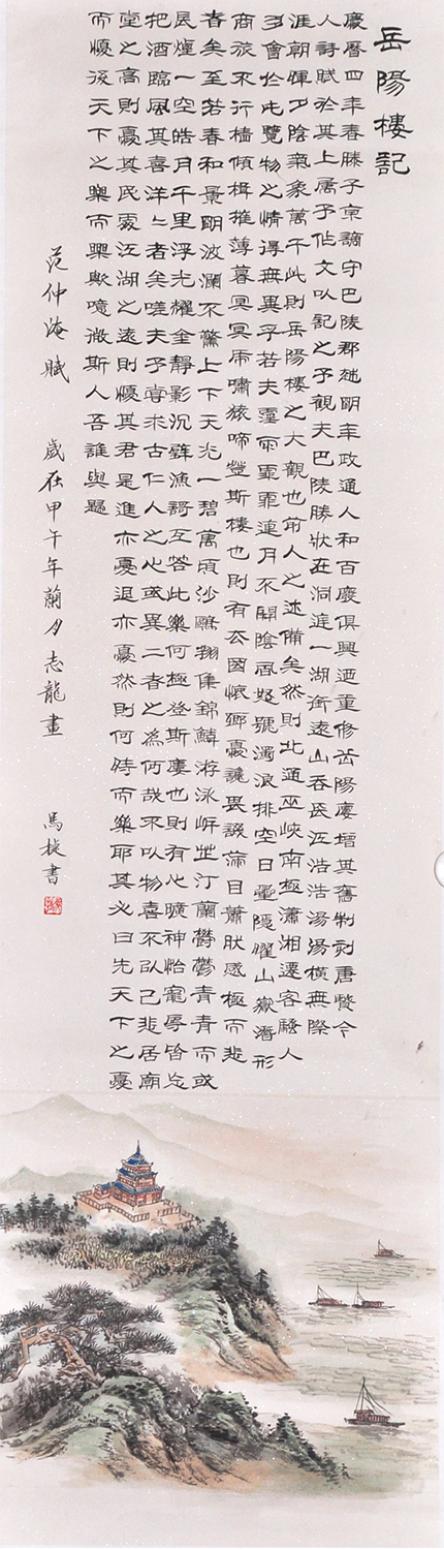 岳陽樓記
慶曆四年春滕子京謫守巴陵郡越明年政通人和百廢俱興迺重修岳陽樓增其舊制刻唐賢今
人詩賦於其上屬予作文以記之予觀夫巴陵勝狀在洞庭一湖銜遠山吞長江浩浩湯湯橫無際
涯朝暉夕陰氣象萬千此則岳陽樓之大觀也前人之述備矣然則北通巫峽南極瀟湘遷客騷人
多會於此覽物之情得無異乎若夫霪雨霏霏連月不開陰風怒號濁浪排空日星隱耀山嶽潛形
商旅不行檣傾楫摧薄暮冥冥虎嘯猿啼登斯樓也則有去國懷鄉憂讒畏譏滿目蕭然感極而悲
者矣至若春和景明波瀾不驚上下天光一碧萬頃沙鷗翔集錦鱗游泳岸芷汀蘭鬱鬱青青而或
長煙一空皓月千里浮光耀金靜影沉璧漁歌互答此樂何極登斯樓也則有心曠神怡寵辱皆忘
把酒臨風其喜洋洋者矣嗟夫予嘗求古仁人之心或異二者之為何哉不以物喜不以己悲居廟
堂之高則憂其民處江湖之遠則憂其君是進亦憂退亦憂然則何時而樂耶其必曰先天下之憂
而憂後天下之樂而樂歟噫微斯人吾誰與歸
范仲淹賦 歲在甲午年蘭月志龍畫 馬 書